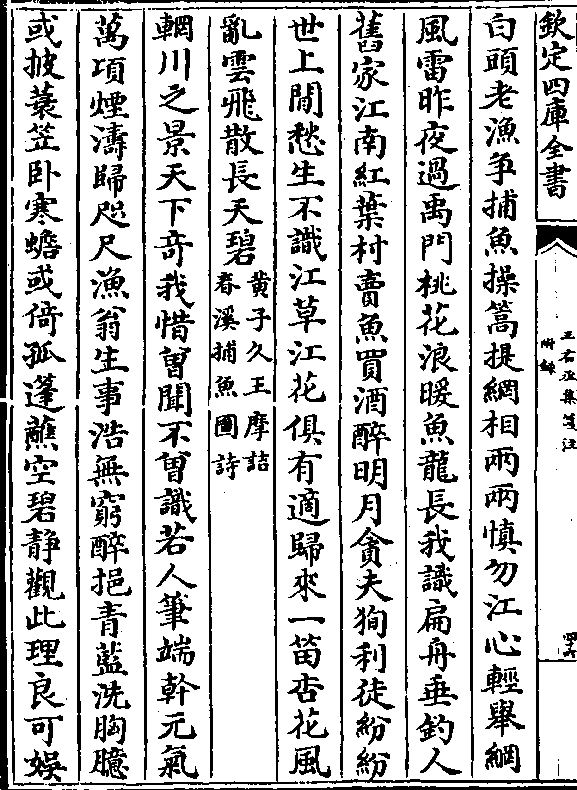 欽定四庫全書
王右丞集箋注
附錄
白頭老漁爭捕魚操篙提網相兩兩慎勿江心輕舉網
風雷昨夜過禹門桃花浪暖魚龍長我識扁舟垂釣人
舊家江南紅葉村賣魚買酒醉明月貪夫狥利徒紛紛
世上閒愁生不識江草江花俱有適歸來一笛杏花風
亂雲飛散長天碧黃子久王摩詰
春溪捕魚圖詩
輞川之景天下竒我惜曽聞不曽識若人筆端斡元氣
萬項煙濤歸咫尺漁翁生事浩無窮醉挹青藍洗胸臆
或披蓑笠卧寒蟾或倚孤蓬蘸空碧静觀此理良可娯